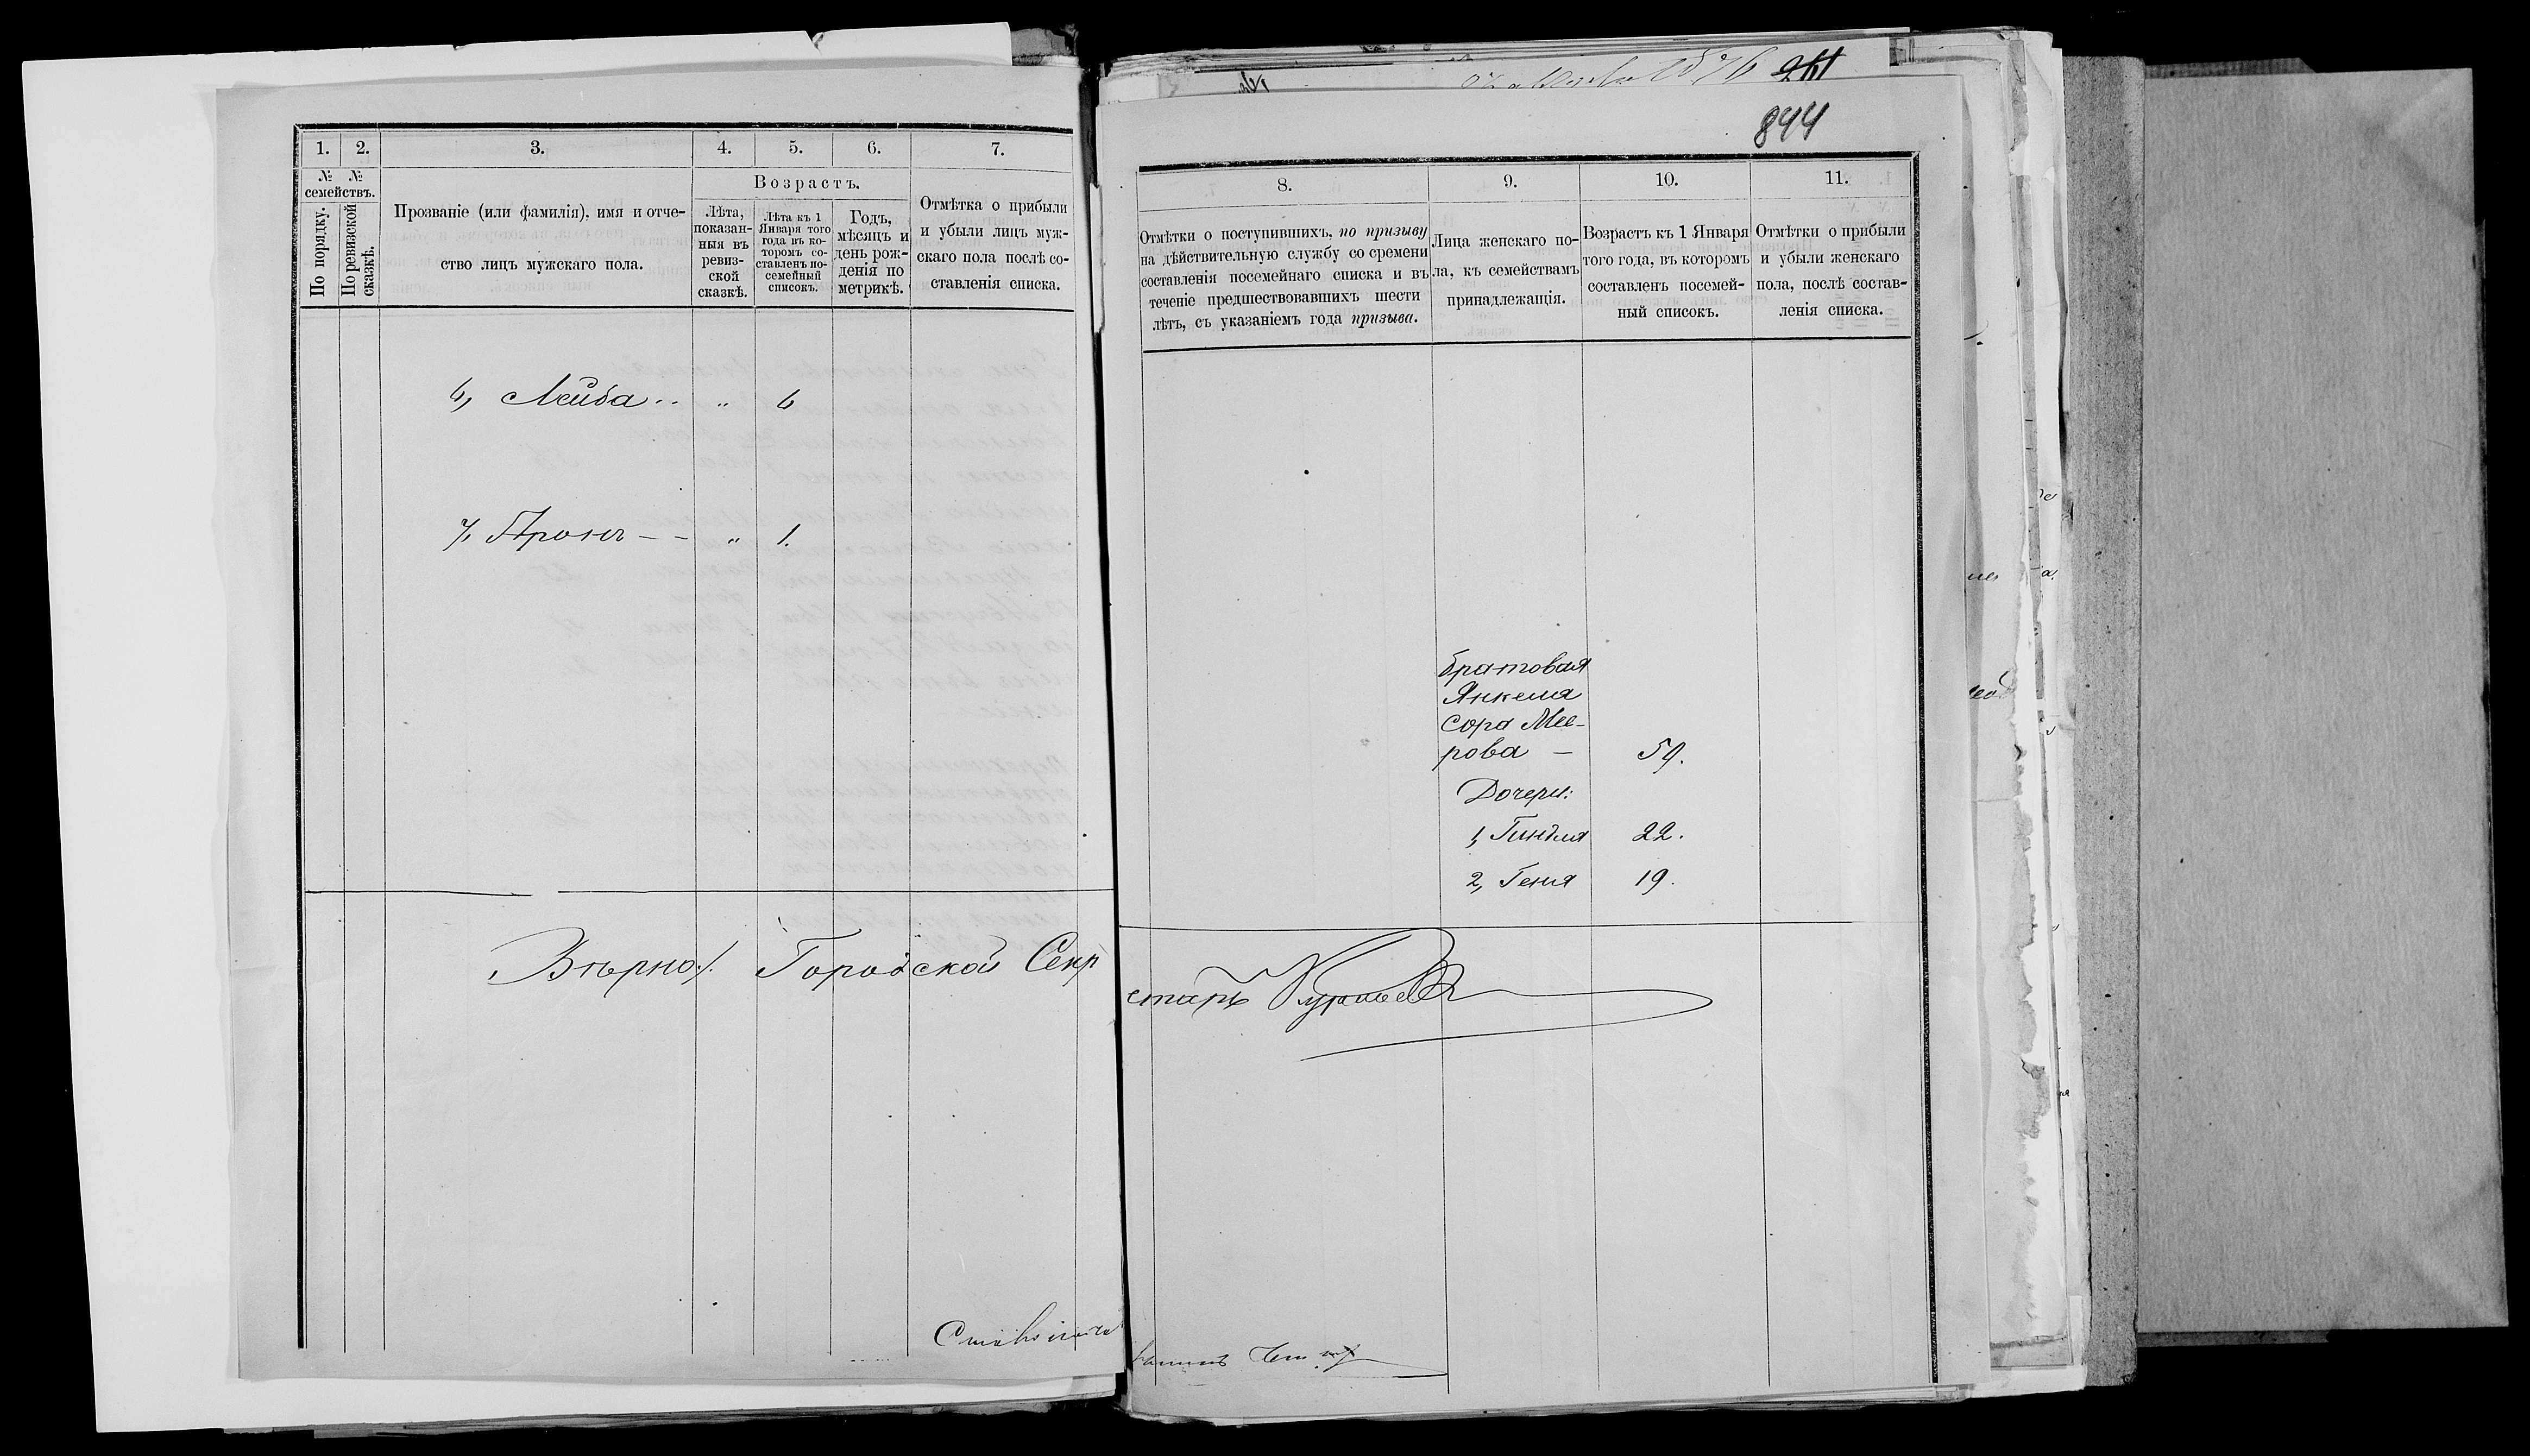 844
1. 2. 3. 4. 5. 6. 7.
№ №
семействъ.
По порядку.
По ревизской
сказкѣ.
Прозваніе (или фамилія), имя и отче-
ство лицъ мужскаго пола.
Возрастъ.
Лѣта,
показан-
ныя въ
ревиз-
ской
сказкѣ.
Лѣта къ 1
Января того
года въ ко-
торомъ со-
ставленъ по-
семейный
списокъ.
Годъ,
мѣсяцъ и
день рож-
денія по
метрикѣ.
Отмѣтка о прибыли
и убыли лицъ муж-
скаго пола послѣ со-
ставленія списка.
6, Лейба „ 6
7, Аронъ — — „ 1.
8. 9. 10. 11.
Отмѣтки о поступившихъ, по призыву
на дѣйствительную службу со времени
составленія посемейнаго списка и въ
теченіе предшествовавшихъ шести
лѣтъ, съ указаніемъ года призыва.
Лица женскаго по-
ла, къ семействамъ
принадлежащія.
Возрастъ къ 1 Января
того года, въ которомъ
составленъ посемей-
ный списокъ.
Отмѣтки о прибыли
и убыли женскаго
пола, послѣ состав-
ленія списка.
братовая
Янкеля
Сора Мее-
рова — 59.
Дочери:
1, Гиндля 22.
2, Геня 19.
Вѣрно: Городской Секр
етарь